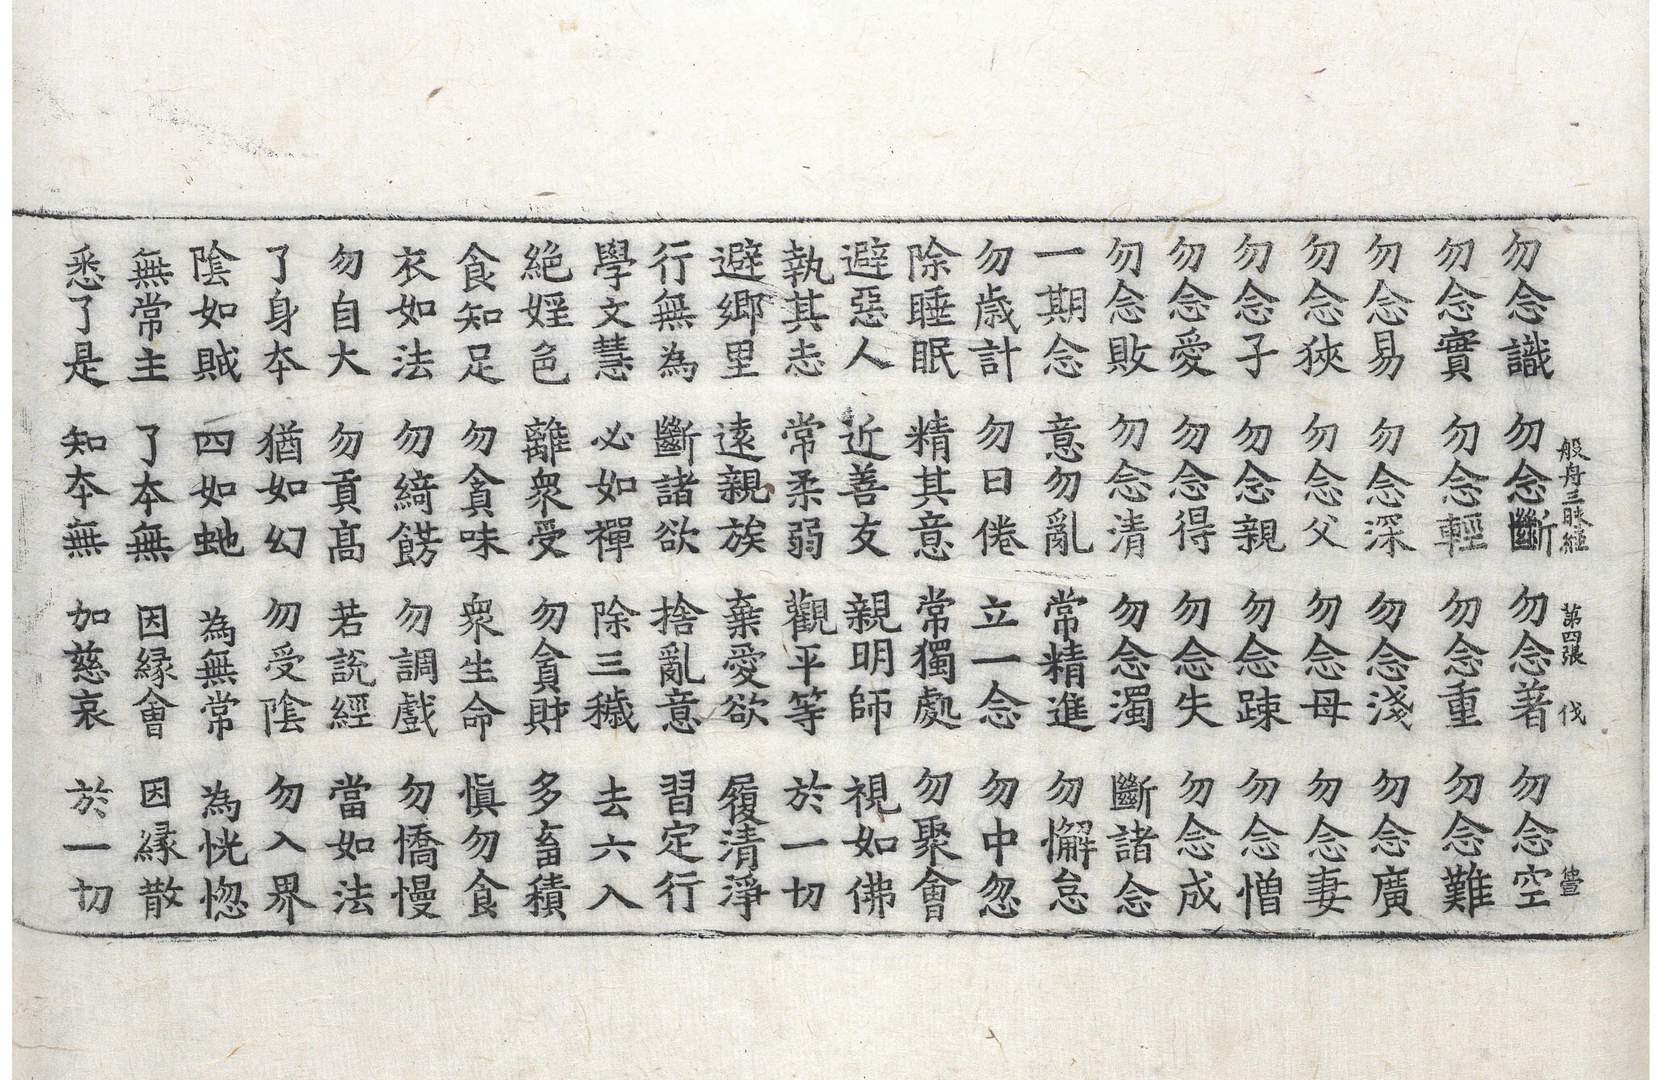 般舟三昧經 第四張 伐
勿念識 勿念斷 勿念著 勿念空
勿念實 勿念輕 勿念重 勿念難
勿念易 勿念深 勿念淺 勿念廣
勿念狹 勿念父 勿念母 勿念妻
勿念子 勿念親 勿念踈 勿念憎
勿念愛 勿念得 勿念失 勿念成
勿念敗 勿念清 勿念濁 斷諸念
一期念 意勿亂 常精進 勿懈怠
勿歲計 勿日倦 立一念 勿中忽
除睡眠 精其意 常獨處 勿聚會
避惡人 近善友 親明師 視如佛
執其志 常柔弱 觀平等 於一切
避鄉里 遠親族 棄愛欲 履清淨
行無為 斷諸欲 捨亂意 習定行
學文慧 必如禪 除三穢 去六入
絕婬色 離眾受 勿貪財 多畜積
食知足 勿貪味 眾生命 慎勿食
衣如法 勿綺餝 勿調戲 勿憍慢
勿自大 勿貢高 若說經 當如法
了身本 猶如幻 勿受陰 勿入界
陰如賊 四如虵 為無常 為恍惚
無常主 了本無 因緣會 因緣散
悉了是 知本無 加慈哀 於一切